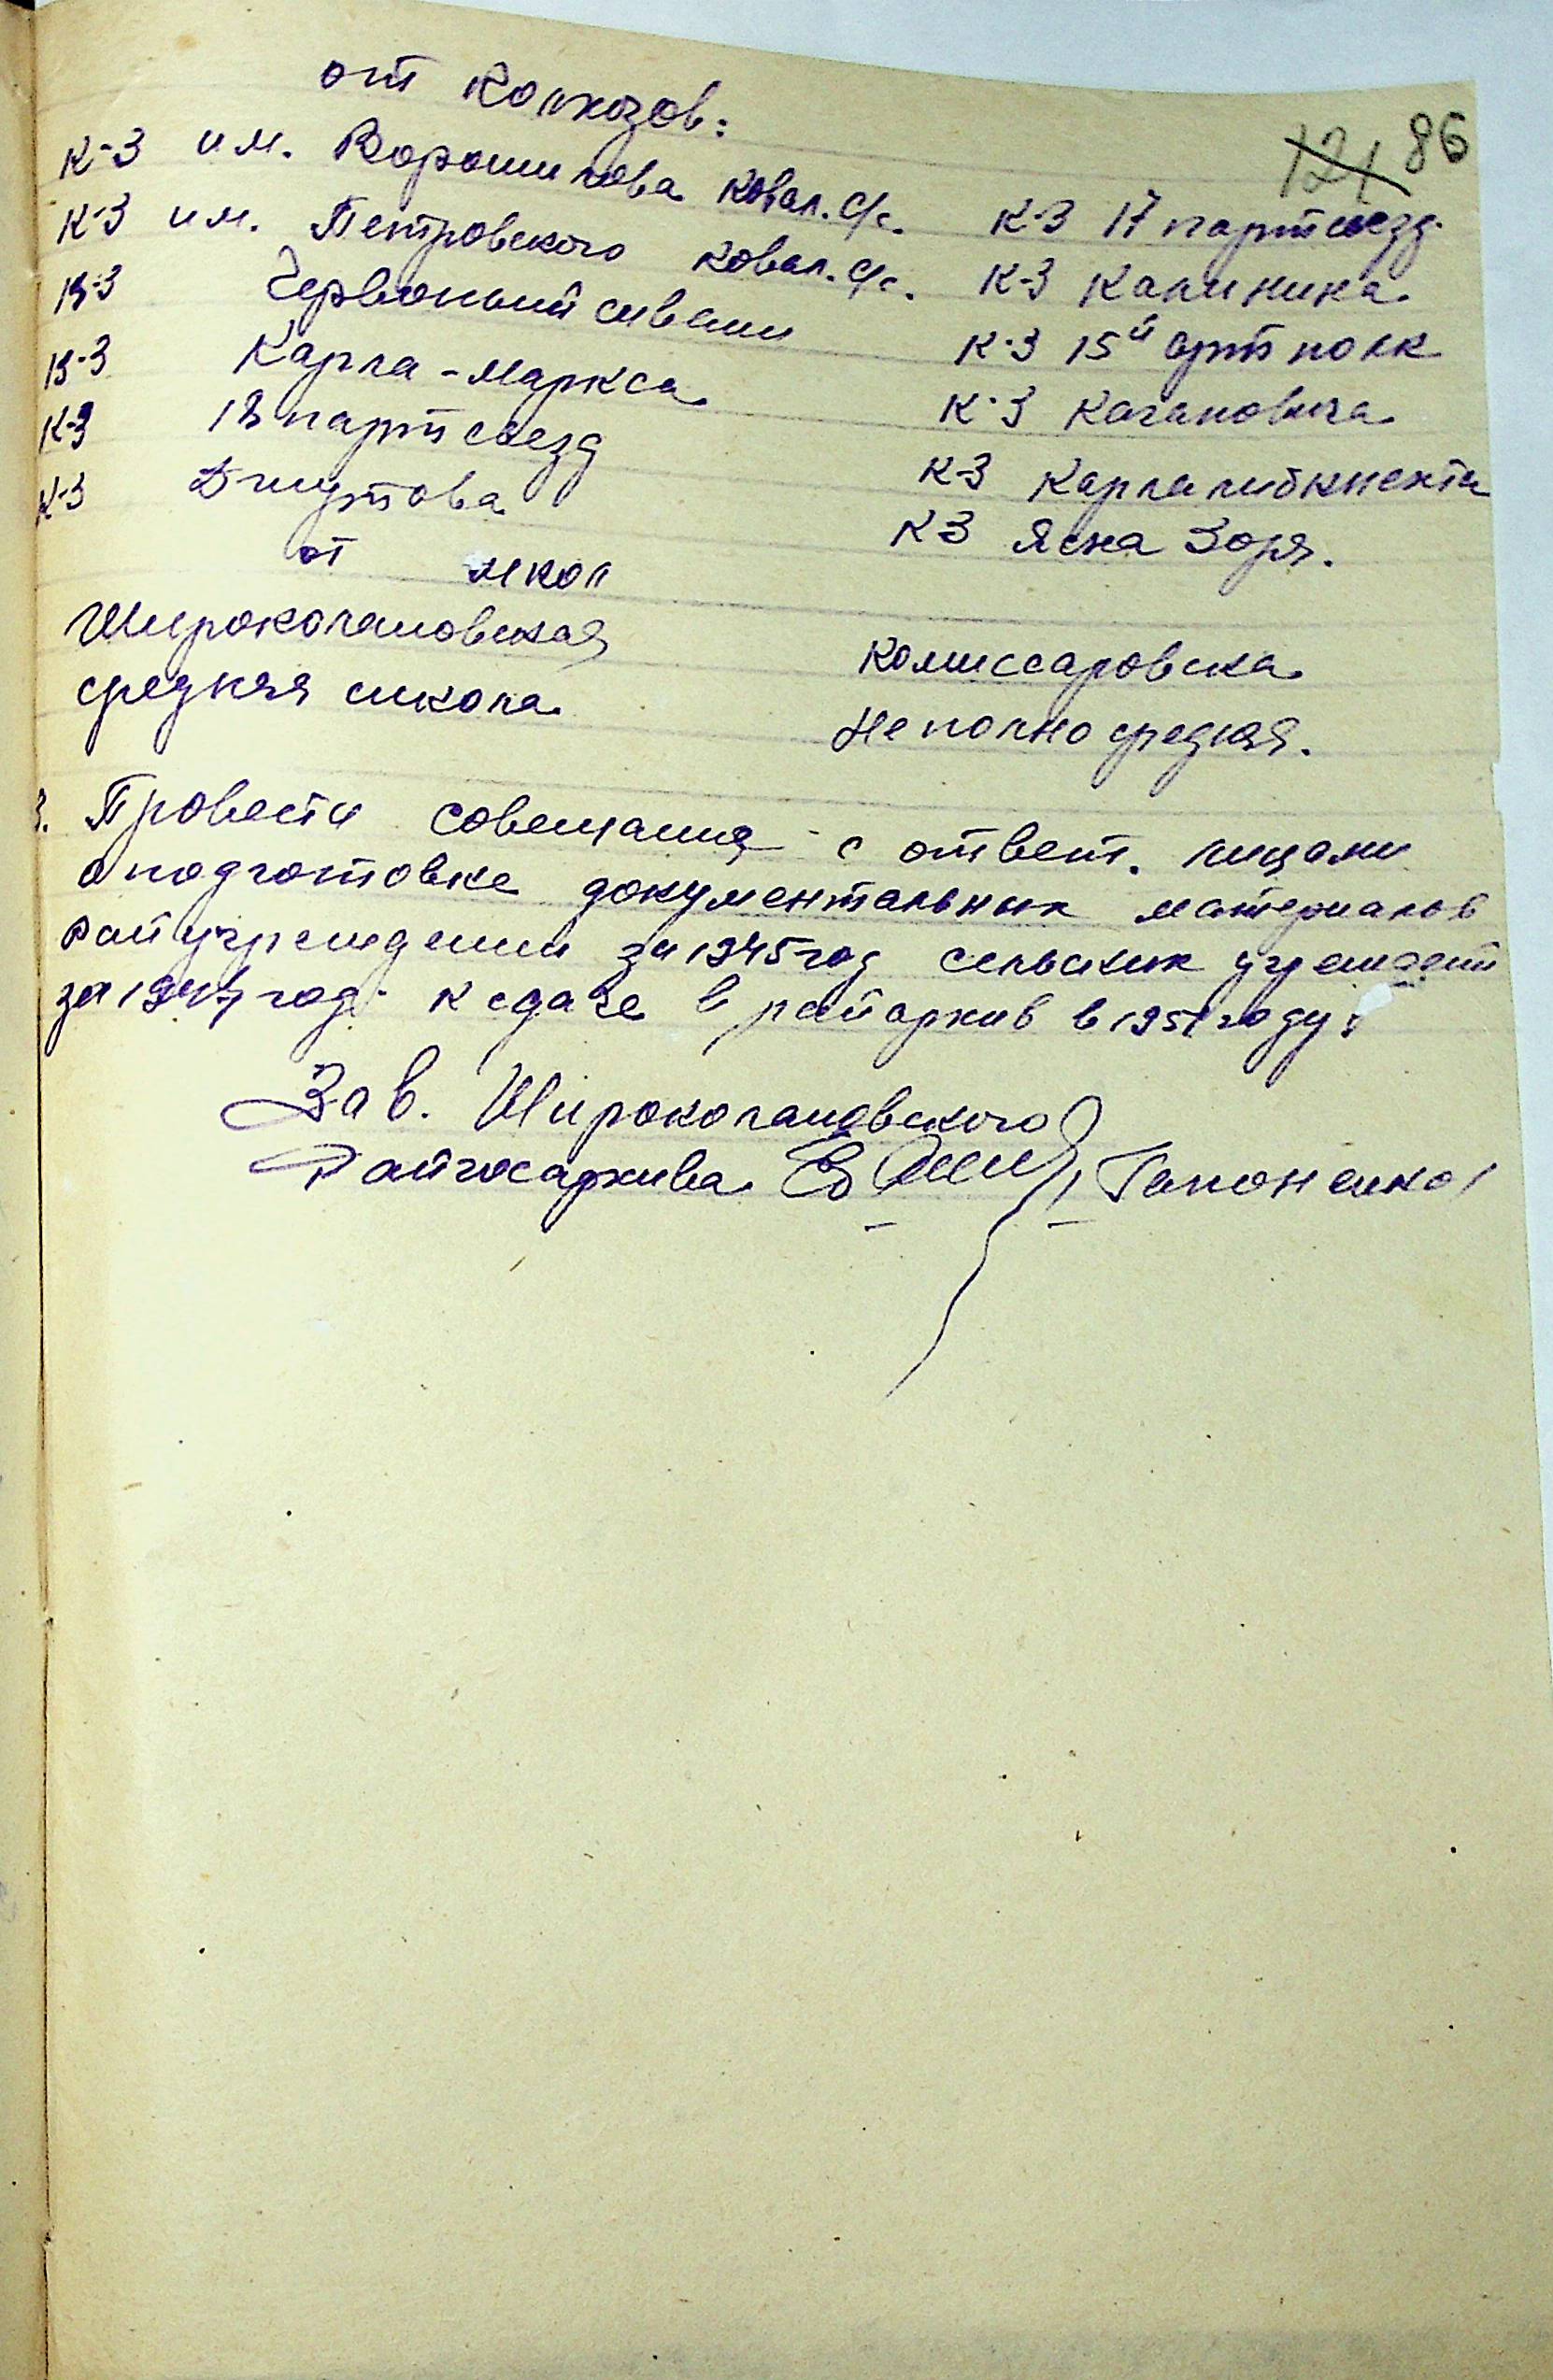 от колхозов:
121 86
К-З им. Ворошилова Ковал. с/с.
К-З им. Петровского Ковал. с/с.
К-З Червоный сиваш
К-З Карла-Маркса
К-З 18 партсъезд
К-З
К-З 17 партсъезд.
К-З Калинина
К-З 15й артполк
К-З Кагановича
К-З Карла либкнехта
КЗ Ясна Зоря.
от школ
Широколановская
средняя школа
Комиссаровска
Неполно средняя.
3. Провести совещания с ответ. лицами
о подготовке документальных материалов
райучреждений за 1945 год сельских учрежден
за 1947 год к сдаче в райархив в 1951 году.
Зав. Широколановского
Райгосархива /Гапоненко/